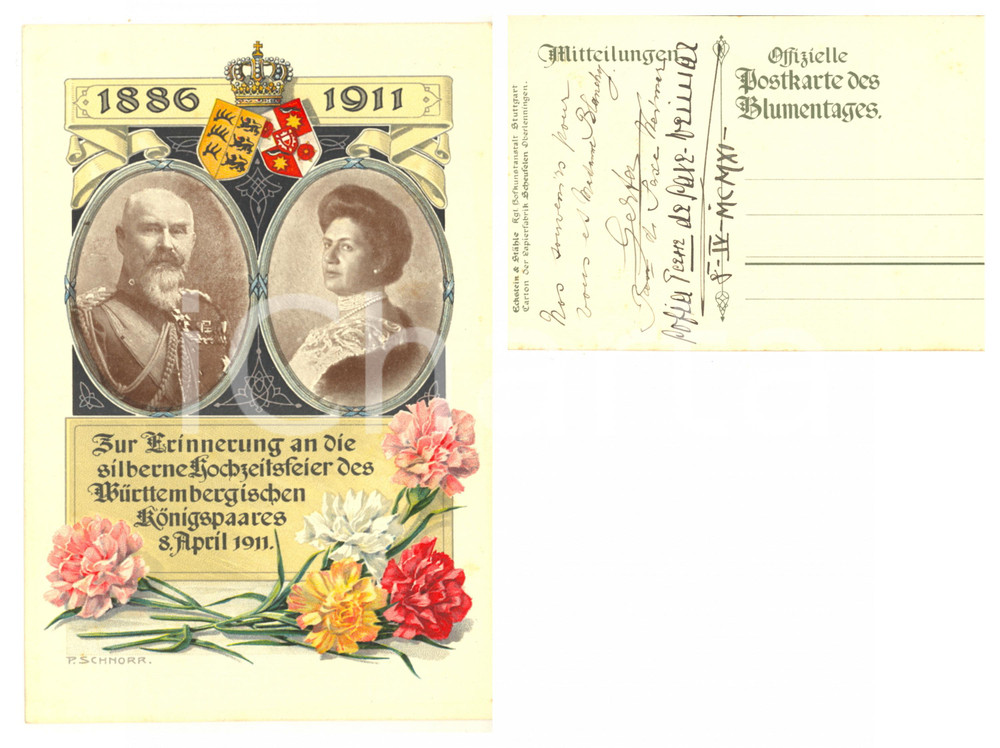 1886 1911
Zur Erinnerung an die
silberne Hochzeitsfeier des
Württembergischen
Königspaares
8. April 1911.
P. SCHNORR.
Mitteilungen
Offizielle
Postkarte des
Blumentages.
Eckstein & Stähle Kgl Hofkunstanstalt Stuttgart
Carton der Papierfabrik Scheufelen Oberlenningen.
Nos souvenirs pour
vous et Madame
Gerta
de Saxe Weimar
de Saxe-Weimar
8-IV-MCMXI-
iCharta